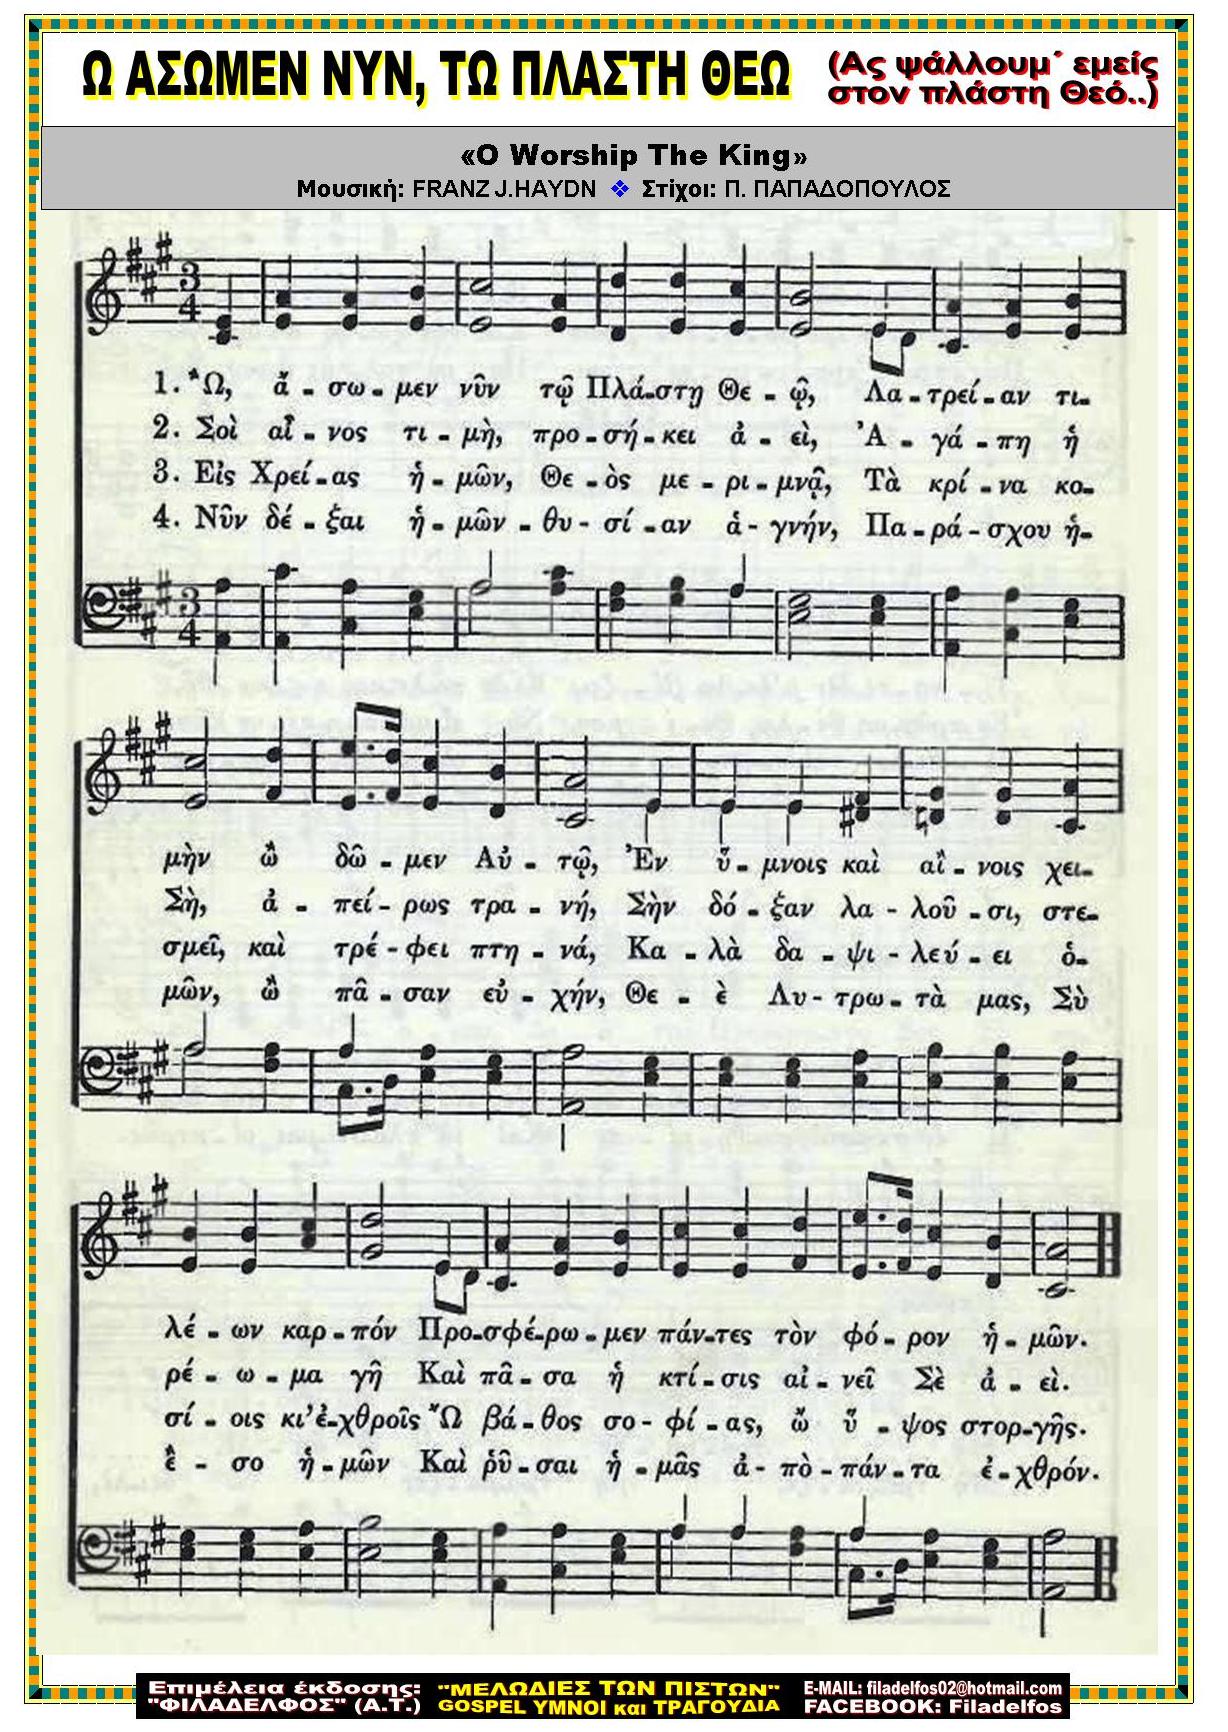 Ω ΑΣΩΜΕΝ ΝΥΝ, ΤΩ ΠΛΑΣΤΗ ΘΕΩ
(Ας ψάλλουμ΄ εμείς
στον πλάστη Θεό..)
«O Worship The King»
Μουσική: FRANZ J.HAYDN ❖ Στίχοι: Π. ΠΑΠΑΔΟΠΟΥΛΟΣ
3
4
1. Ὦ, ᾄ - σω - μεν νῦν τῷ Πλά-στῃ Θε - ῷ, Λα-τρεί-αν τι-
2. Σοὶ αἶ - νος τι - μὴ, προ-σή-κει ἀ - εὶ, Ἀ - γά - πη ἡ
3. Εἰς Χρεί-ας ἡ - μῶν, Θε-ὸς με - ρι - μνᾷ, Τὰ κρί - να κο-
4. Νῦν δέ - ξαι ἡ - μῶν - θυ - σί - αν ἁ - γνήν, Πα - ρά - σχου ἡ-
3
4
μὴν ὢ δῶ - μεν Αὐ - τῷ, Ἐν ὕ - μνοις καὶ αἴ - νοις χει-
Σὴ, ἀ - πεί - ρως τρα - νή, Σὴν δό - ξαν λα - λοῦ - σι, στε-
σμεῖ, καὶ τρέ - φει πτη - νά, Κα - λὰ δα - ψι - λεύ - ει ὁ-
μῶν, ὢ πᾶ - σαν εὐ - χήν, Θε - ὲ Λυ - τρω - τὰ μας, Σὺ
λέ - ων καρ - πόν Προ-σφέ-ρω - μεν πάν-τες τὸν φό - ρον ἡ - μῶν.
ρέ - ω - μα γῆ Καὶ πᾶ - σα ἡ κτί - σις αἰ - νεῖ Σὲ ἀ - εὶ.
σί - οις κι' ἐ-χθροῖς Ὦ βά - θος σο - φί - ας, ὦ ὕ - ψος στορ-γῆς.
ἔ - σο ἡ - μῶν Καὶ ῥῦ - σαι ἡ - μᾶς ἀ - πὸ - πάν - τα ἐ - χθρόν.
Επιμέλεια έκδοσης: "ΜΕΛΩΔΙΕΣ ΤΩΝ ΠΙΣΤΩΝ" E-MAIL: filadelfos02@hotmail.com
"ΦΙΛΑΔΕΛΦΟΣ" (Α.Τ.) GOSPEL ΥΜΝΟΙ και ΤΡΑΓΟΥΔΙΑ FACEBOOK: Filadelfos